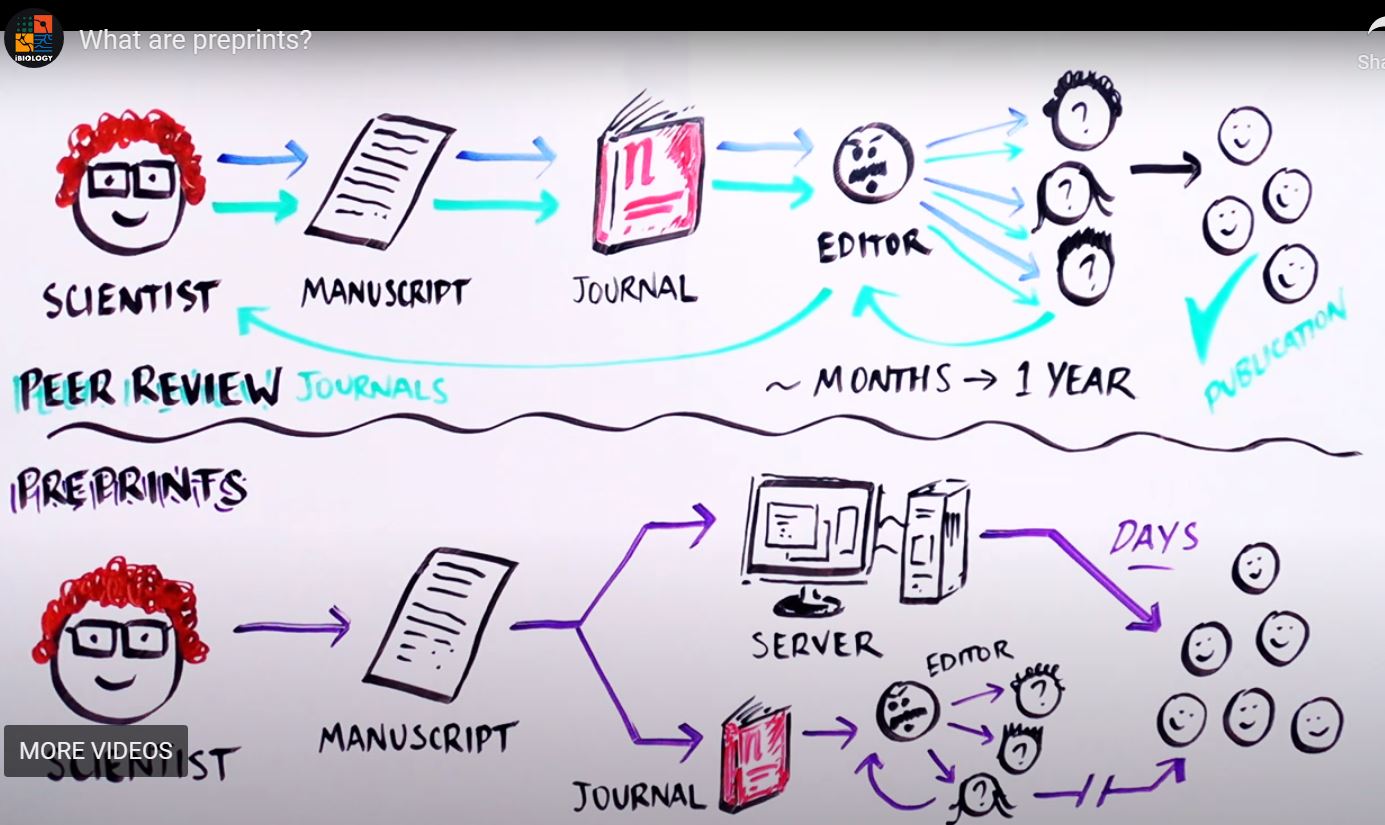 iBIOLOGY
What are preprints?
Sha
n
? ? ?
SCIENTIST
MANUSCRIPT
JOURNAL
EDITOR
PEER REVIEW JOURNALS
~ MONTHS → 1 YEAR
PUBLICATION
PREPRINTS
DAYS
SERVER
EDITOR
n
? ? ?
SCIENTIST
MANUSCRIPT
JOURNAL
MORE VIDEOS